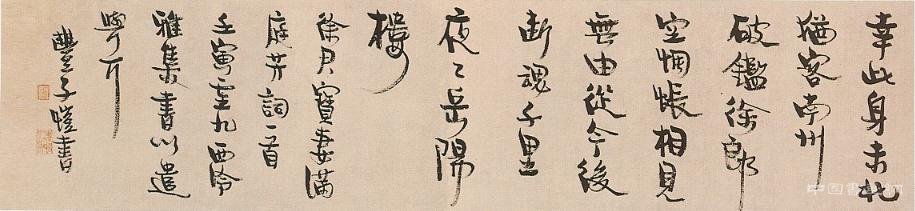 幸此身未北
猶客南州
破鑑徐郎
空惆悵相見
無由從今後
斷魂千里
夜〻岳陽
樓
徐君寶妻滿
庭芳詞一首
壬寅重九西泠
雅集書以遣
豐子愷書